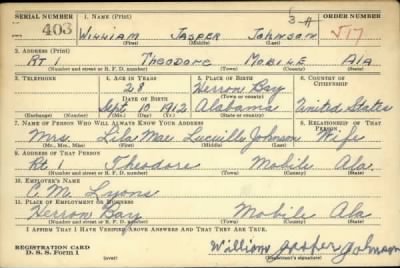 SERIAL NUMBER 1. NAME (Print) 3-A ORDER NUMBER
403 WILLIAM JASPER JOHNSON V17
(First) (Middle) (Last)
2. ADDRESS (Print)
RT 1 THEODORE MOBILE ALA
(Number and street or R. F. D. number) (Town) (County) (State)
3. TELEPHONE 4. AGE IN YEARS 5. PLACE OF BIRTH 6. COUNTRY OF CITIZENSHIP
28 Herron Bay
DATE OF BIRTH (Town or county)
Sept 10 1912 Alabama United States
(Exchange) (Number) (Mo.) (Day) (Yr.) (State or country)
7. NAME OF PERSON WHO WILL ALWAYS KNOW YOUR ADDRESS 8. RELATIONSHIP OF THAT PERSON
Mrs. Lila Mae Lucville Johnson Wife
(Mr., Mrs., Miss) (First) (Middle) (Last)
9. ADDRESS OF THAT PERSON
Rt 1 Theodore Mobile Ala.
(Number and street or R. F. D. number) (Town) (County) (State)
10. EMPLOYER'S NAME
C. M. Lyons
11. PLACE OF EMPLOYMENT OR BUSINESS
Herron Bay Mobile Ala
(Number and street or R. F. D. number) (Town) (County) (State)
I AFFIRM THAT I HAVE VERIFIED ABOVE ANSWERS AND THAT THEY ARE TRUE.
REGISTRATION CARD
D. S. S. FORM 1 (over) William Jasper Johnson
(Registrant's signature)